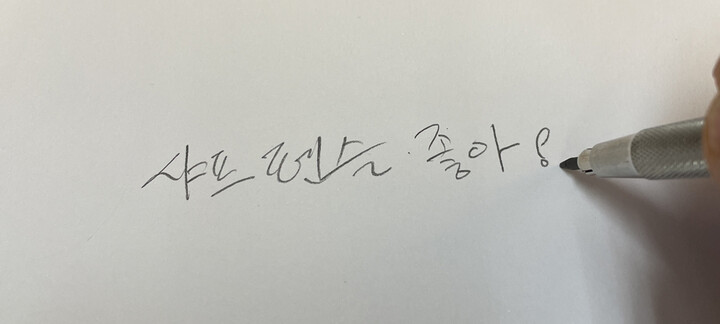 샤프 펜슬 좋아!